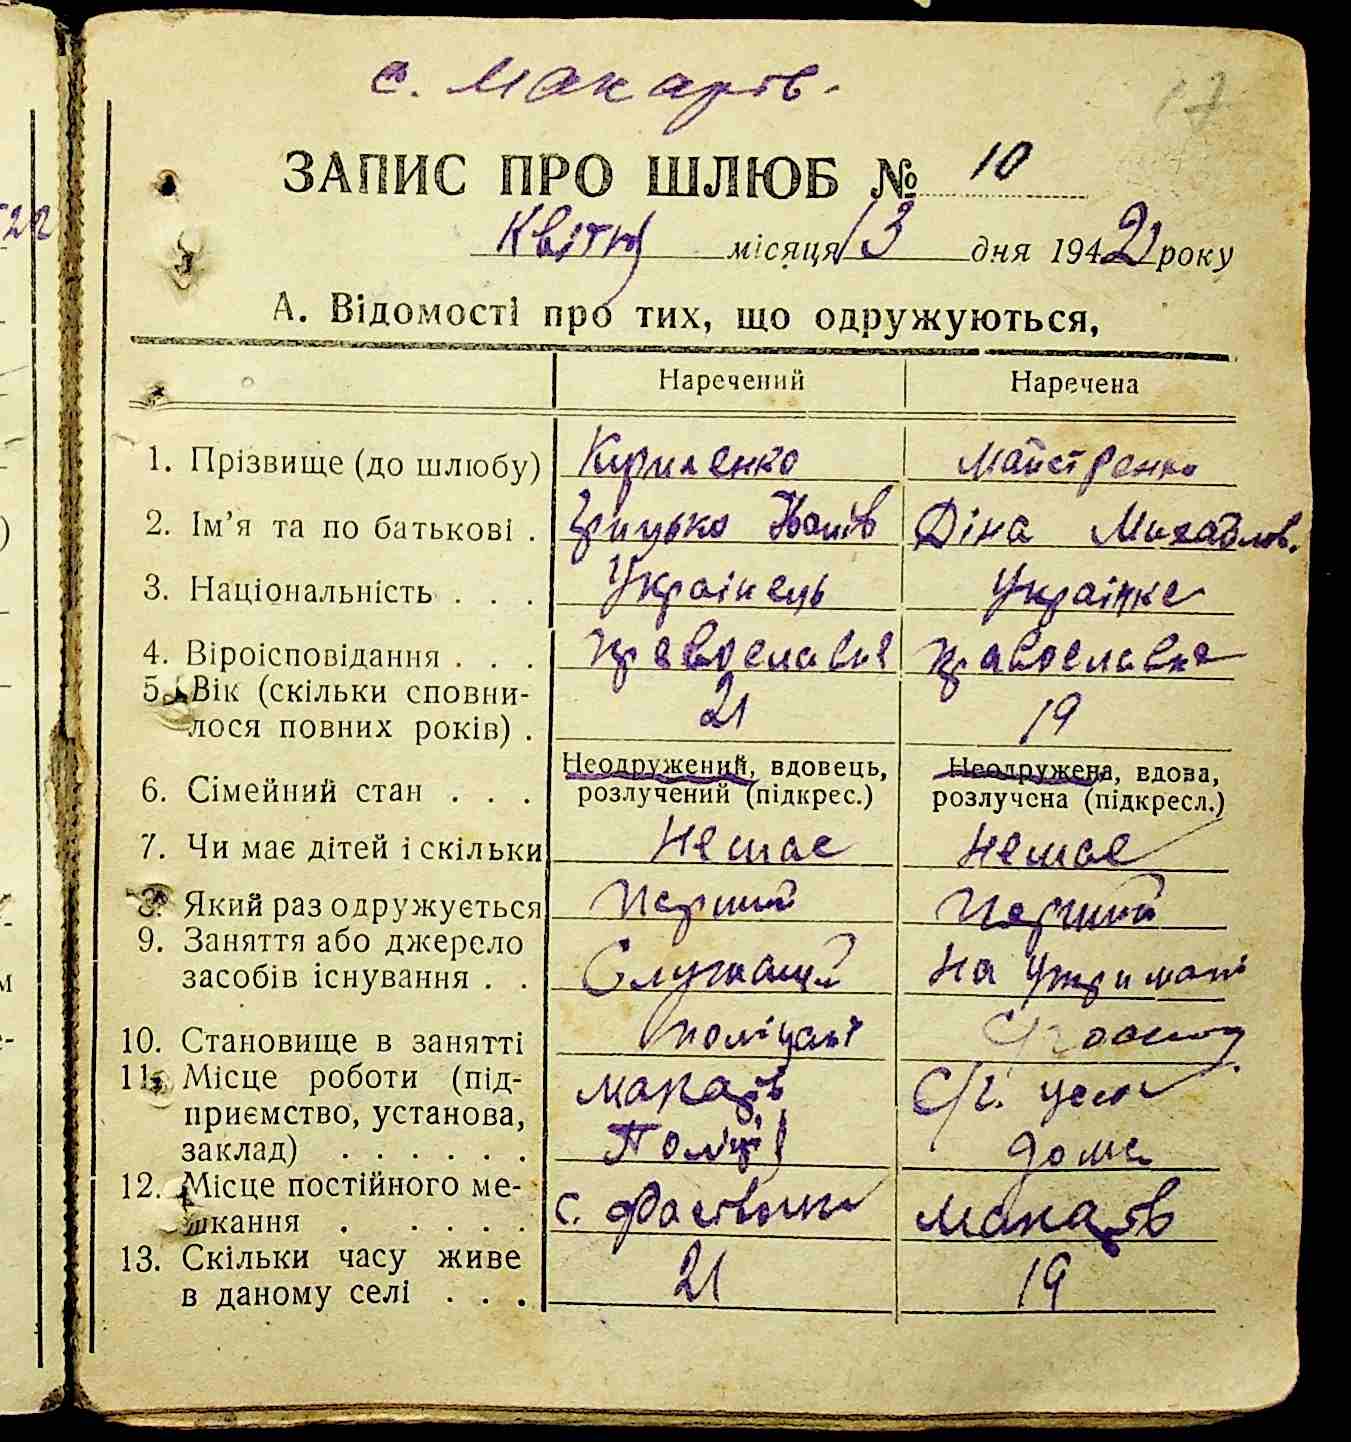 с. Макарів.
17
ЗАПИС ПРО ШЛЮБ № 10
Квітня місяця 13 дня 1942 року
А. Відомості про тих, що одружуються,
Наречений Наречена
1. Прізвище (до шлюбу) Кириленко Майстренко
2. Ім’я та по батькові . Грицько Діна Михайлов.
3. Національність . . . Українець Українка
4. Віроісповідання . . . православне православна
5. Вік (скільки сповни-
лося повних років) . 21 19
Неодружений, вдовець, Неодружена, вдова,
6. Сімейний стан . . . розлучений (підкрес.) розлучена (підкресл.)
7. Чи має дітей і скільки Немає Немає
8. Який раз одружується Перший Перший
9. Заняття або джерело
засобів існування . . Служащий На утримані
10. Становище в занятті поліцаї
11. Місце роботи (під- Макарів С/г.
приємство, установа,
заклад) . . . . . . Поліції дома
12. Місце постійного ме-
шкання . . . . . с. Макарів
13. Скільки часу живе
в даному селі . . . 21 19